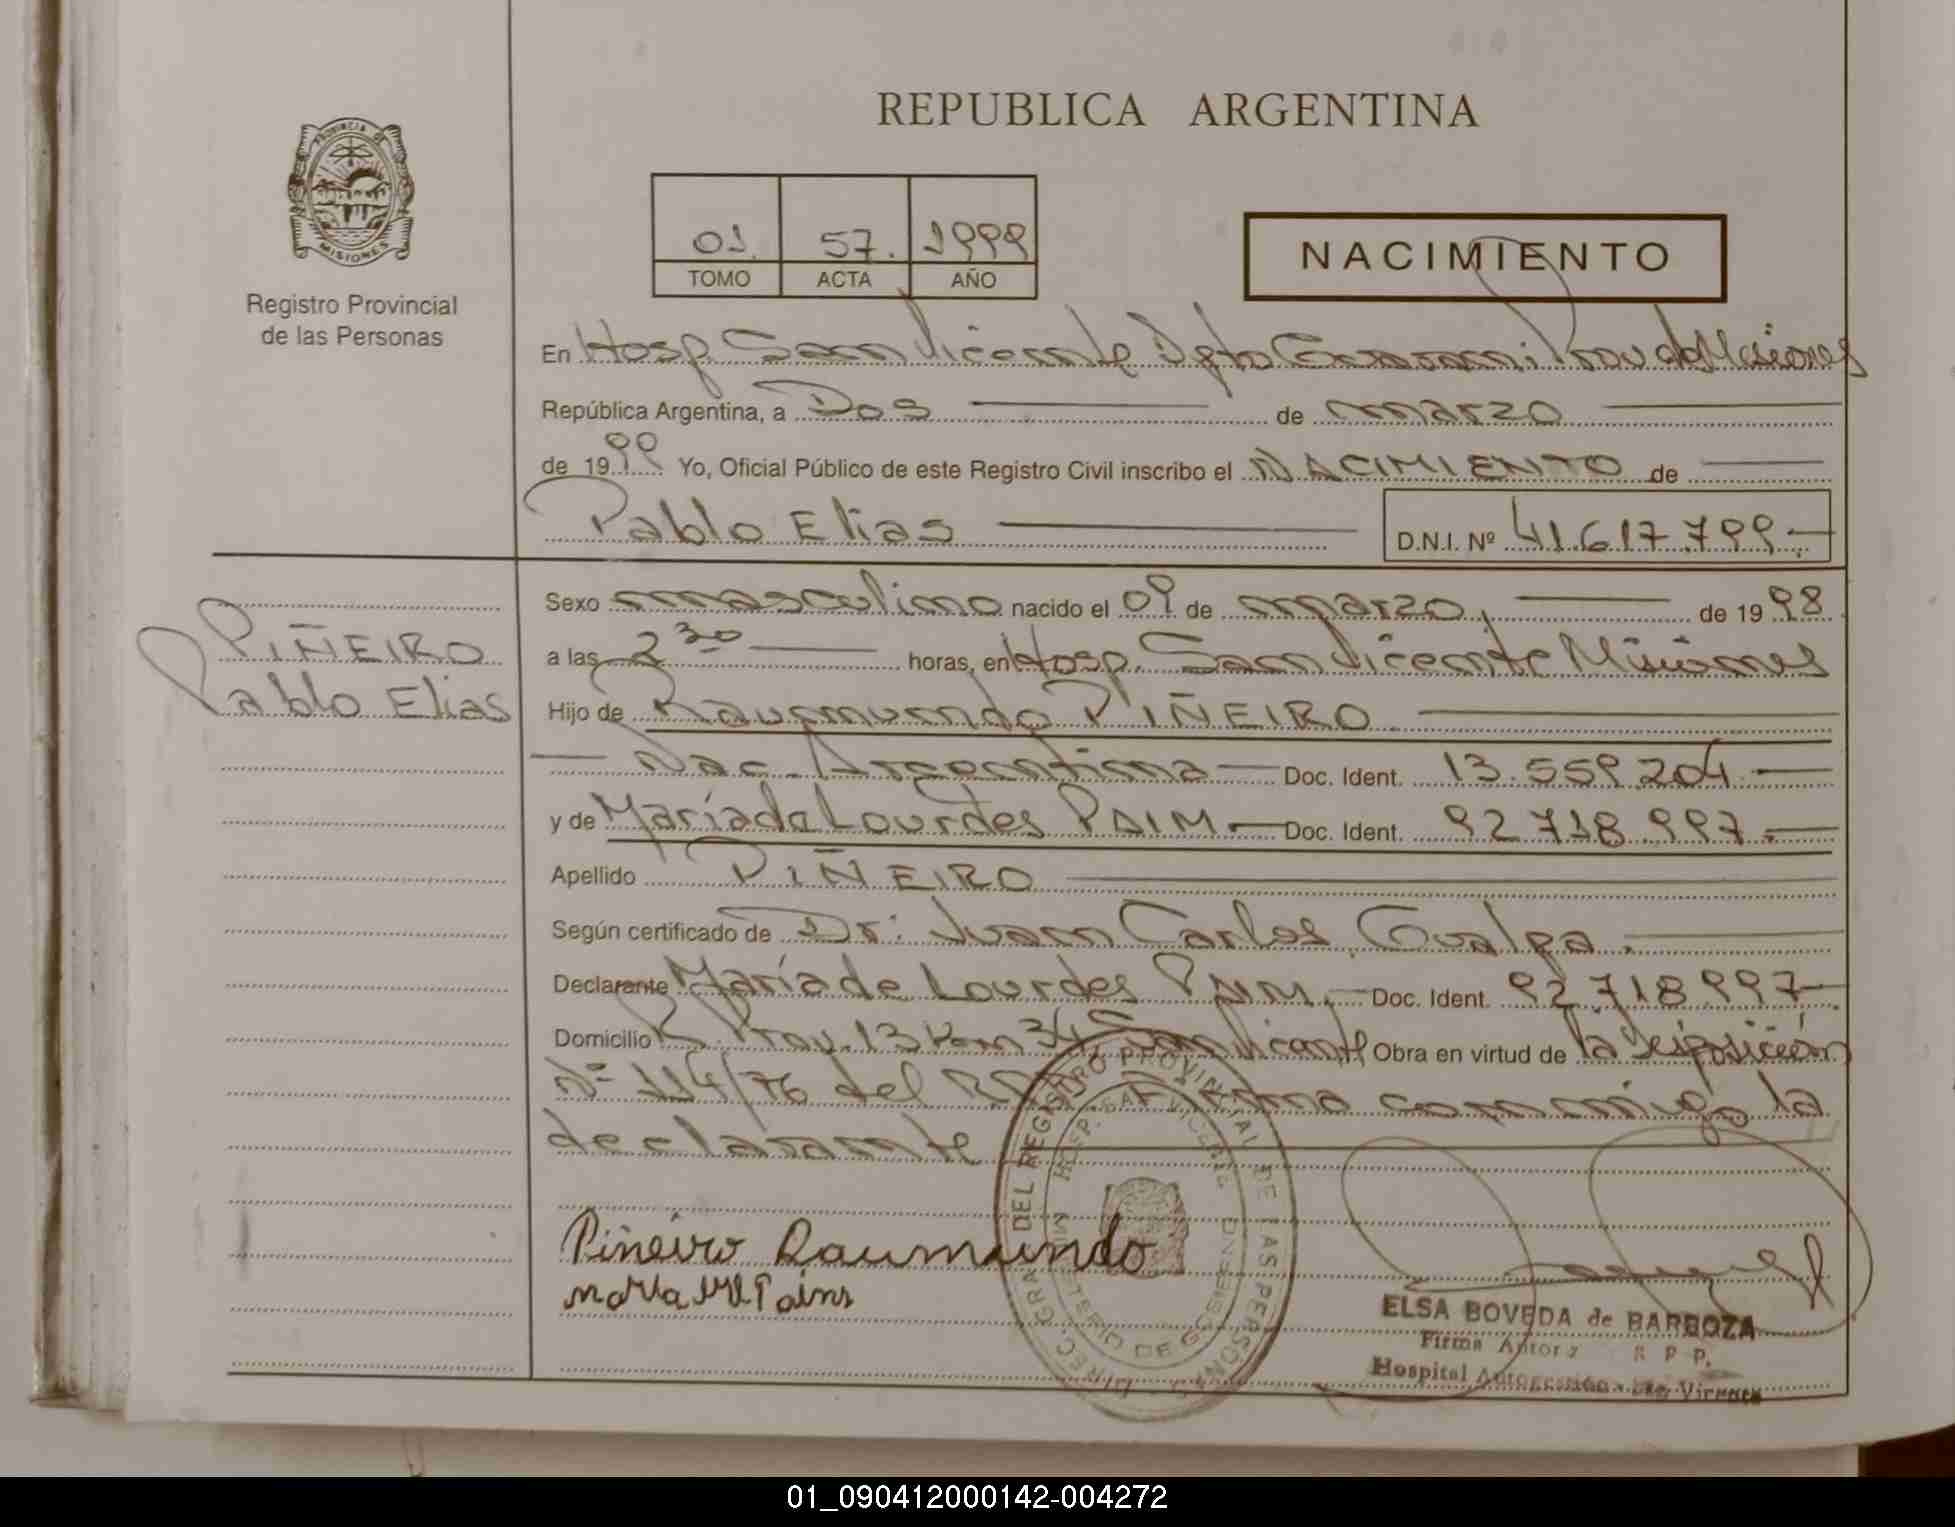 REPUBLICA ARGENTINA
PROVINCIA DE
MISIONES
Registro Provincial
de las Personas
01. 57. 1999
TOMO ACTA AÑO
NACIMIENTO
En Hosp. San Vicente Dpto Guarani Prov de Misiones
República Argentina, a Dos de marzo
de 1999 Yo, Oficial Público de este Registro Civil inscribo el NACIMIENTO de
Pablo Elias D.N.I. Nº 41.617.799.-
Sexo masculino nacido el 09 de marzo, de 1998
PIÑEIRO
Pablo Elias
a las 2 30 horas, en Hosp. San Vicente Misiones
Hijo de Raumundo PIÑEIRO
Nac. Argentina Doc. Ident. 13.559.204
y de María de Lourdes PAIM Doc. Ident. 92.718.997.
Apellido PIÑEIRO
Según certificado de Dr. Juan Carlos Gualpa.
Declarante María de Lourdes PAIM, Doc. Ident. 92.718.997
Domicilio R. Prov. 13 Km 34 San Vicente Obra en virtud de la Disposición
Nº 114/76 del Firma conmigo la
declarante
DIREC. GRAL DEL REGISTRO PROVINCIAL DE LAS PERSONAS
HOSP. SAN VICENTE
MINISTERIO DE GOBIERNO
Piñeiro Raumundo
Maria Paim
ELSA BOVEDA de BARBOZA
Firma R P P.
Hospital Autogestión
01_090412000142-004272